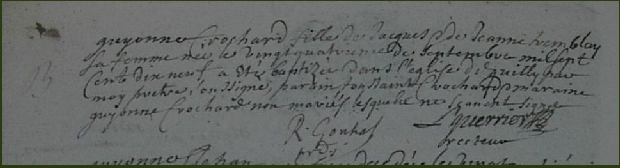 guyonne Crochard fille de Jacques & de Jeanne tremblay
sa femme née le vingt quatrieme de septembre mil sept
Cents dix neuf, a été baptizée dans l'eglise de par
moy pretre soussigné, parain toussaint Crochard & maraine
guyonne Crochard non mariés lesquels ne scavent signer
R. L guerrier
recteur
guyonne Jehan